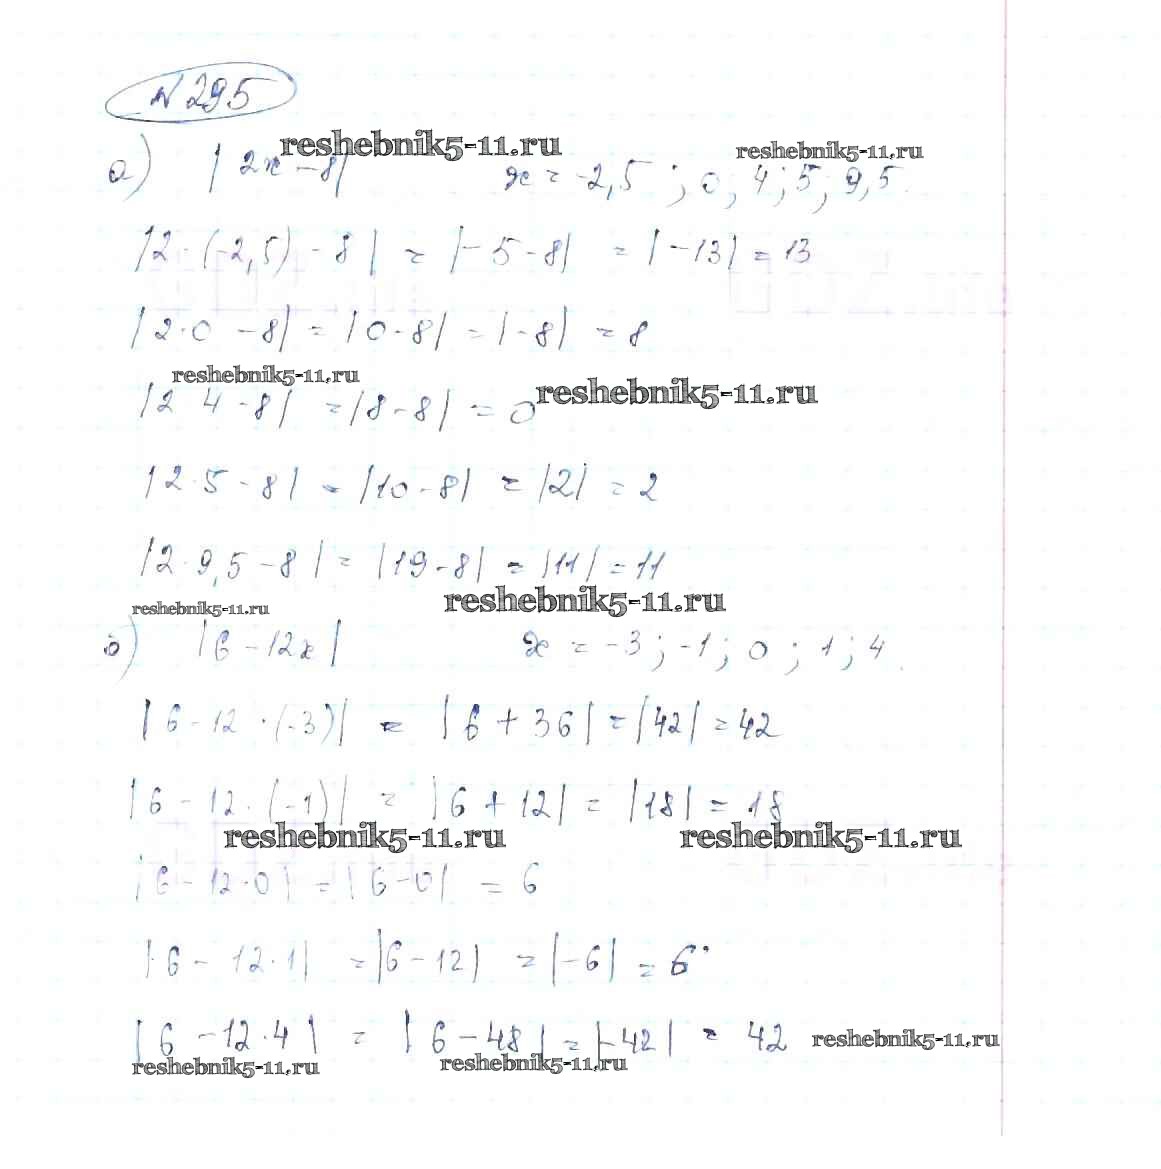 №295
reshebnik5-11.ru
reshebnik5-11.ru
а) |2x-8| x = -2,5; 0; 4; 5; 9,5.
|2·(-2,5)-8| = |-5-8| = |-13| = 13
|2·0-8| = |0-8| = |-8| = 8
reshebnik5-11.ru
reshebnik5-11.ru
|2 4-8| = |8-8| = 0
|2·5-8| = |10-8| = |2| = 2
|2·9,5-8| = |19-8| = |11| = 11
reshebnik5-11.ru
reshebnik5-11.ru
б) |6-12x| x = -3; -1; 0; 1; 4.
|6-12·(-3)| = |6+36| = |42| = 42
|6-12·(-1)| = |6+12| = |18| = 18
reshebnik5-11.ru
reshebnik5-11.ru
|6-12·0| = |6-0| = 6
|6-12·1| = |6-12| = |-6| = 6
|6-12·4| = |6-48| = |-42| = 42
reshebnik5-11.ru
reshebnik5-11.ru
reshebnik5-11.ru